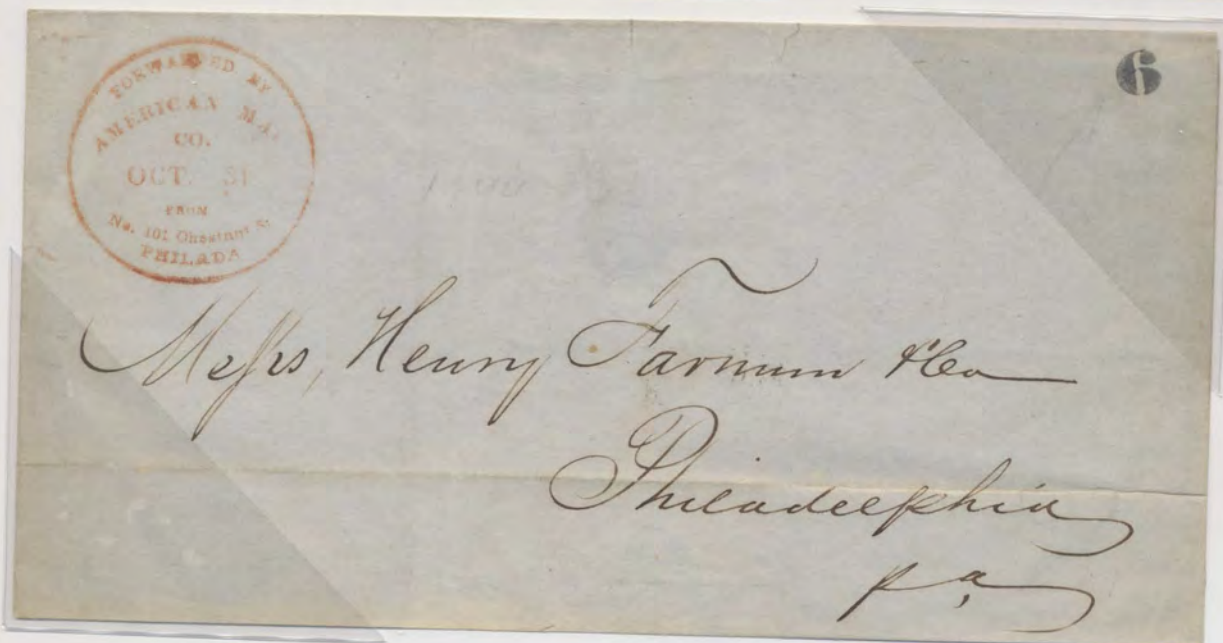 FORWARDED BY
AMERICAN MA
CO.
OCT. 31
FROM
No. 101 Chestnut St
PHILADA
6
Messrs, Henry Farnum & Co
Philadelphia
Pa,